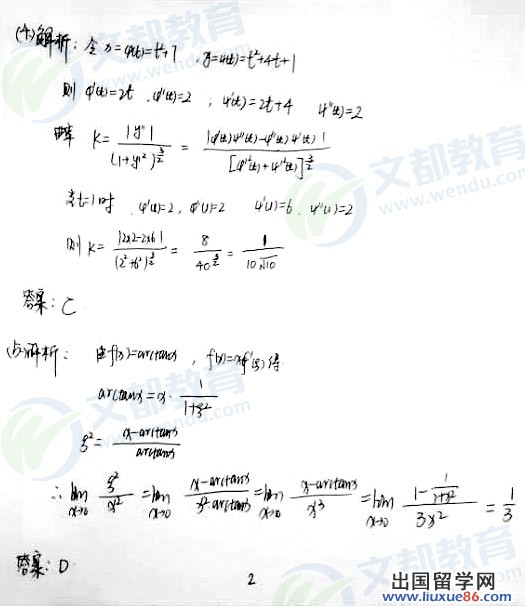 (4)解析: 令 x=φ(t)=t²+7 , y=ψ(t)=t²+4t+1
则 φ'(t)=2t , φ''(t)=2 ; ψ'(t)=2t+4 ψ''(t)=2
曲率 K= |y''| / (1+y'²)^(3/2) = |φ'(t)ψ''(t)-φ''(t)ψ'(t)| / [φ'²(t)+ψ'²(t)]^(3/2)
当t=1时 , φ'(1)=2, φ''(1)=2 ψ'(1)=6, ψ''(1)=2
则 K= |2×2-2×6| / (2²+6²)^(3/2) = 8 / 40^(3/2) = 1 / 10√10
答案: C
(5)解析: 由f(x)=arctanx , f(x)=xf'(ξ)得
arctanx = x· 1 / 1+ξ²
ξ²= x-arctanx / arctanx
∴ lim x→0 ξ²/x² = lim x→0 x-arctanx / x²·arctanx = lim x→0 x-arctanx / x³ = lim x→0 (1 - 1/(1+x²)) / 3x² = 1/3
答案: D
2
文都教育
www.wendu.com
文都教育
www.wendu.com
文都教育
出国留学网
www.liuxue86.com